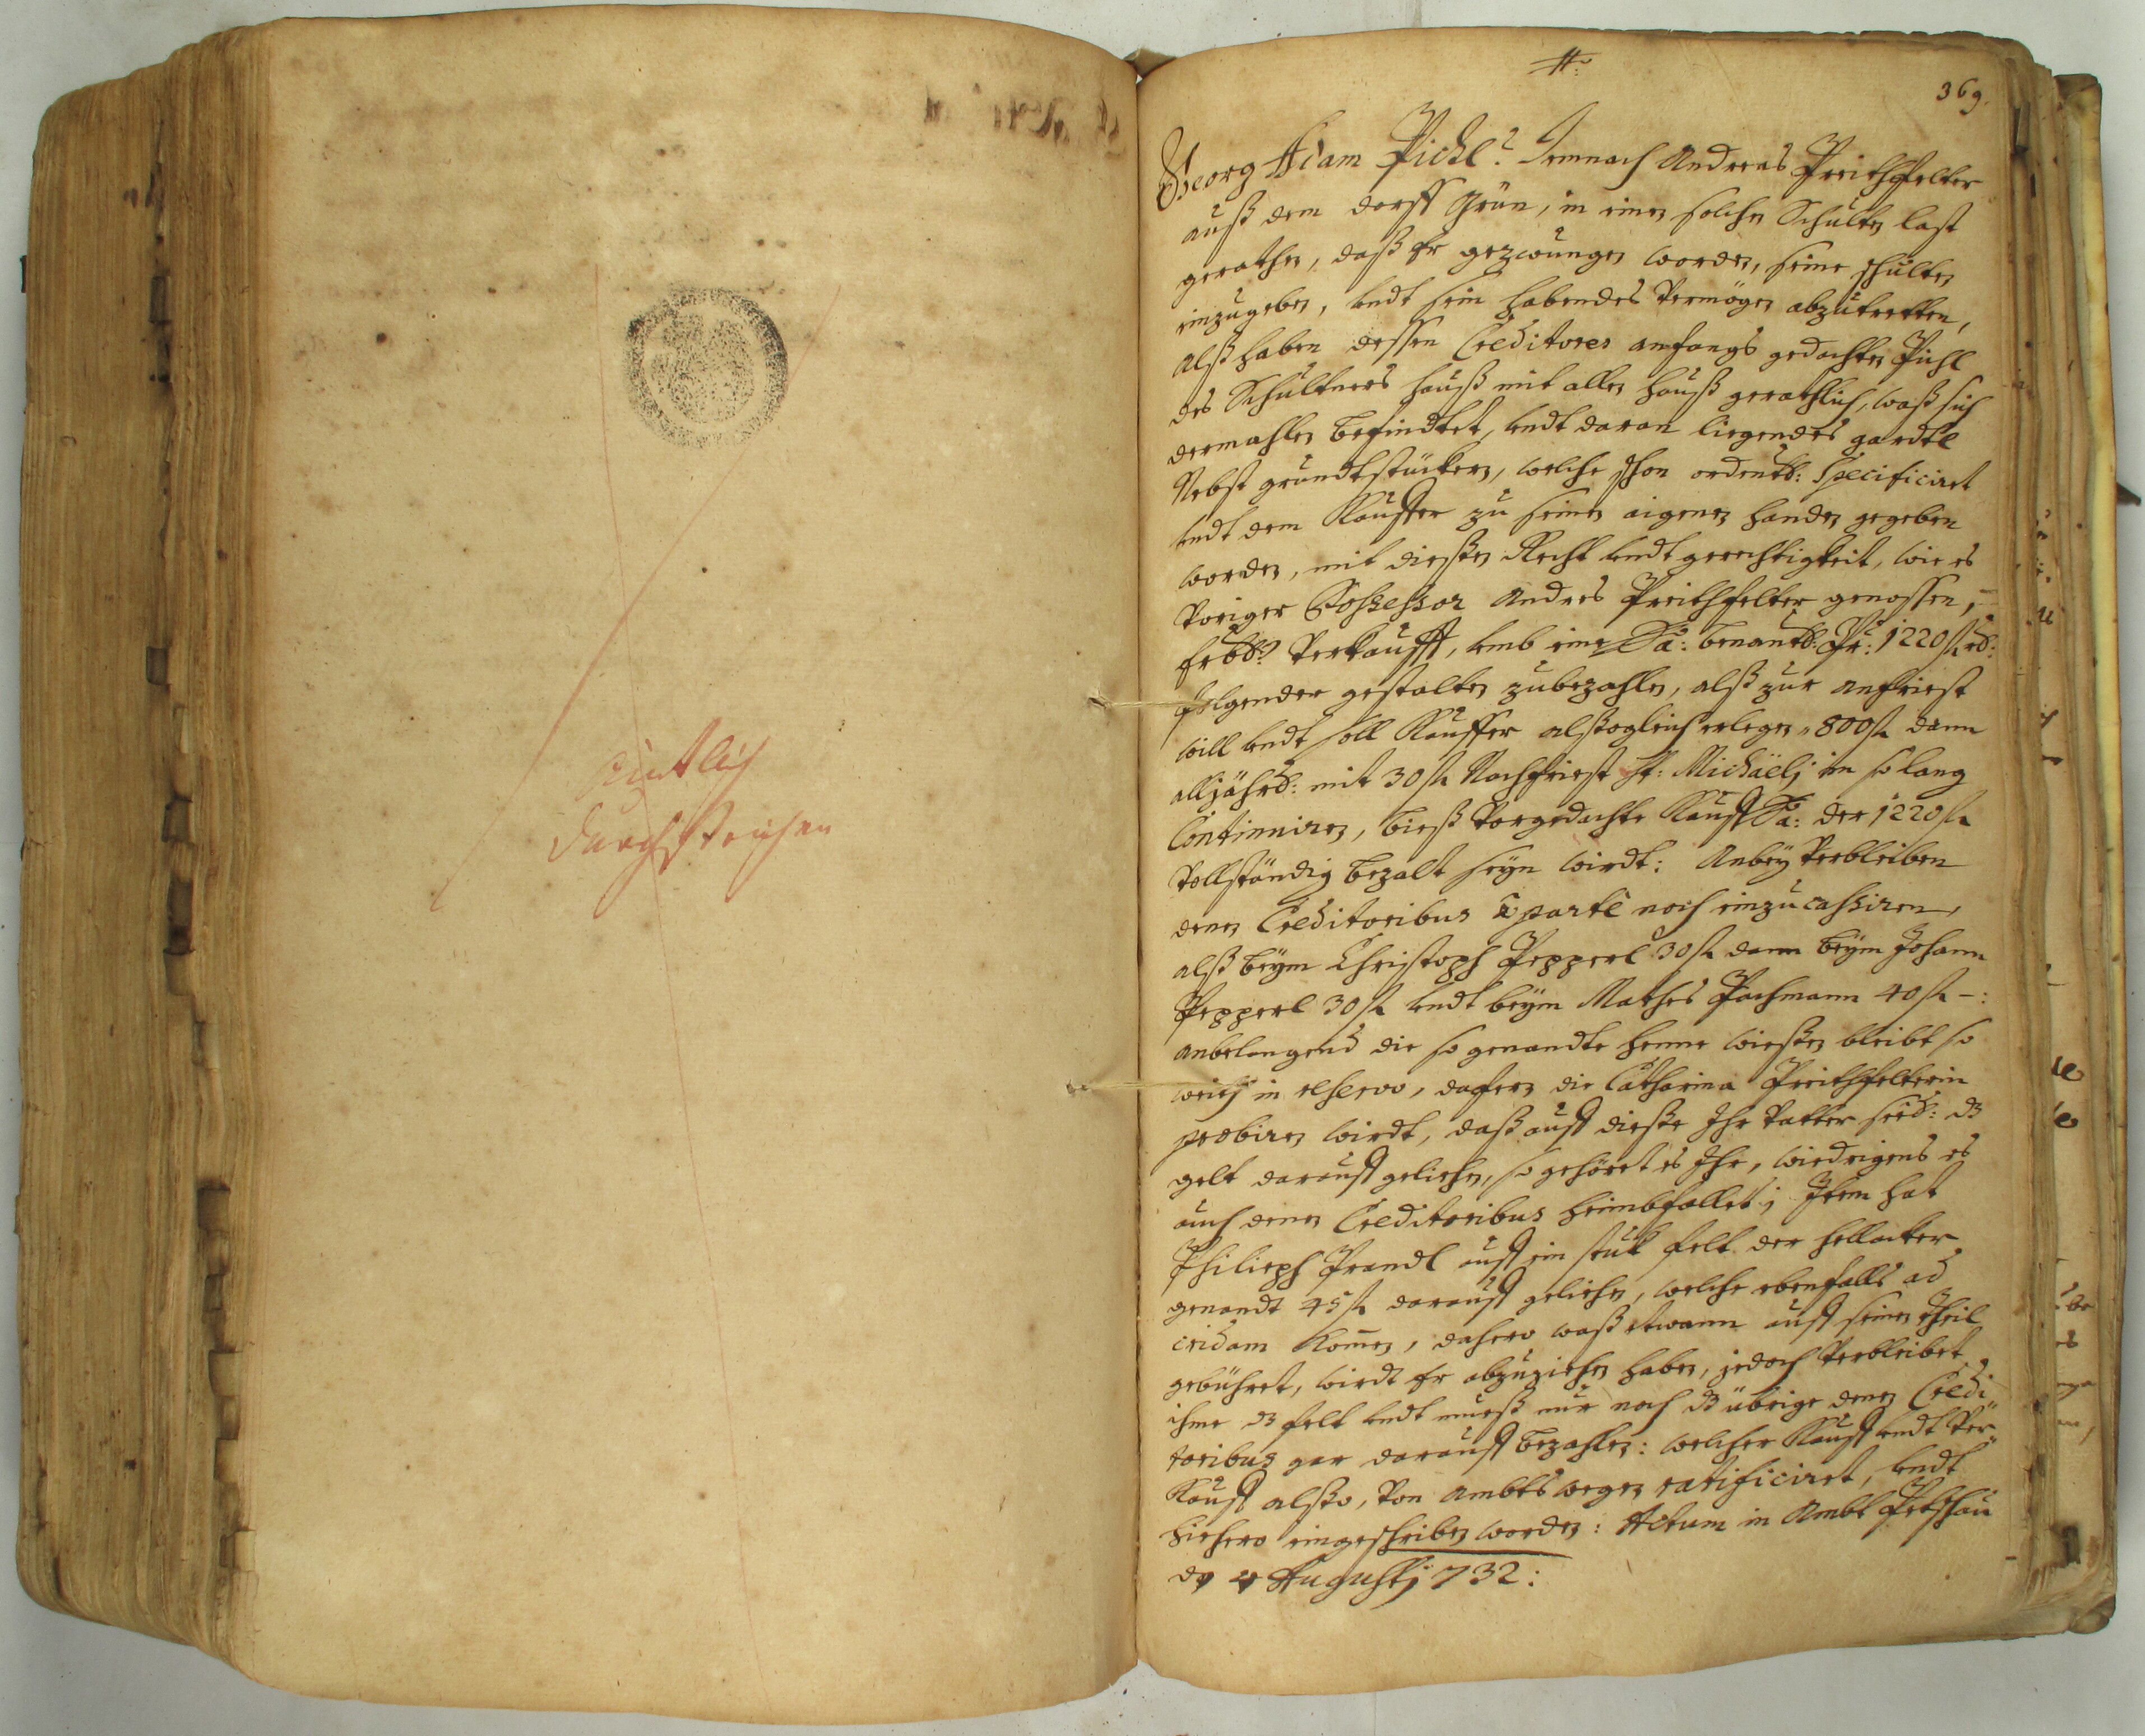 Ämtlich
durchstrichen
369.
Georg Adam Pichl: Demnach Andreas Preithfelter
auß dem dorff Grün, in einen solchen Schulten last
gerathen, daß Er gezwungen worden, seine schulten
einzugeben, undt sein habendes Vermögen abzutretten,
alß haben dessen Creditores anfangs gedachten Pichl
des Schultners hauß mit allen hauß gerathlich, waß sich
dermahlen befindtet, undt daran liegendes gardtl
Nebst grundtstücken, welche schon ordentl: Specificiret
undt dem Kauffer zu seinen aigenen handen gegeben
worden, mit diesen Recht undt gerechtigkeit, wie es
Voriger Possessor Andres Preithfelter genossen,
Erbl: Verkaufft, umb eine Sa: benantl: Pr: 1220 fl rh:
folgender gestalten zubezahlen, alß zur anfriest
will undt soll Kauffer alßogleich erlegen 800 fl dann
alljährl: mit 30 fl Nachfriest St: Michaëlj im so lang
Continuiren, bieß Vorgedachte Kauff Sa: der 1220 fl
Vollständig bezalt seyn wirdt: Anbey Verbleiben
denen Creditoribus à parte noch einzucassiren,
alß beym Christoph Pepperl 30 fl dann beym Johann
Pepperl 30 fl undt beym Mathes Pachmann 40 fl -:
anbelangend die so genandte henne wießen bleibt so
weith in reservo, dafern die Catharina Preithfelterin
probiren wirdt, daß auff dieße Ihr Vatter seel: dz
gelt darauff geliehen, so gehöret es Ihr, wiedrigens es
auch denen Creditoribus heimbfallet; Item hat
Philieph Prandl auff ein stuk felt der hellacker
genandt 45 fl darauff geliehen, welche ebenfalls ad
cridam komen, dahero waß etwann auff seinen theil
gebühret, wirdt Er abzuziehen haben, jedoch Verbleibet
ihme dz felt undt mueß nur noch dz übrige denen Credi
toribus gar darauff bezahlen: welcher Kauff undt Ver-
Kauff alßo, Von Ambts wegen ratificiret, undt
hiehero eingeschriben worden: Actum in Ambt Petschau
den 4 Augustj 732: